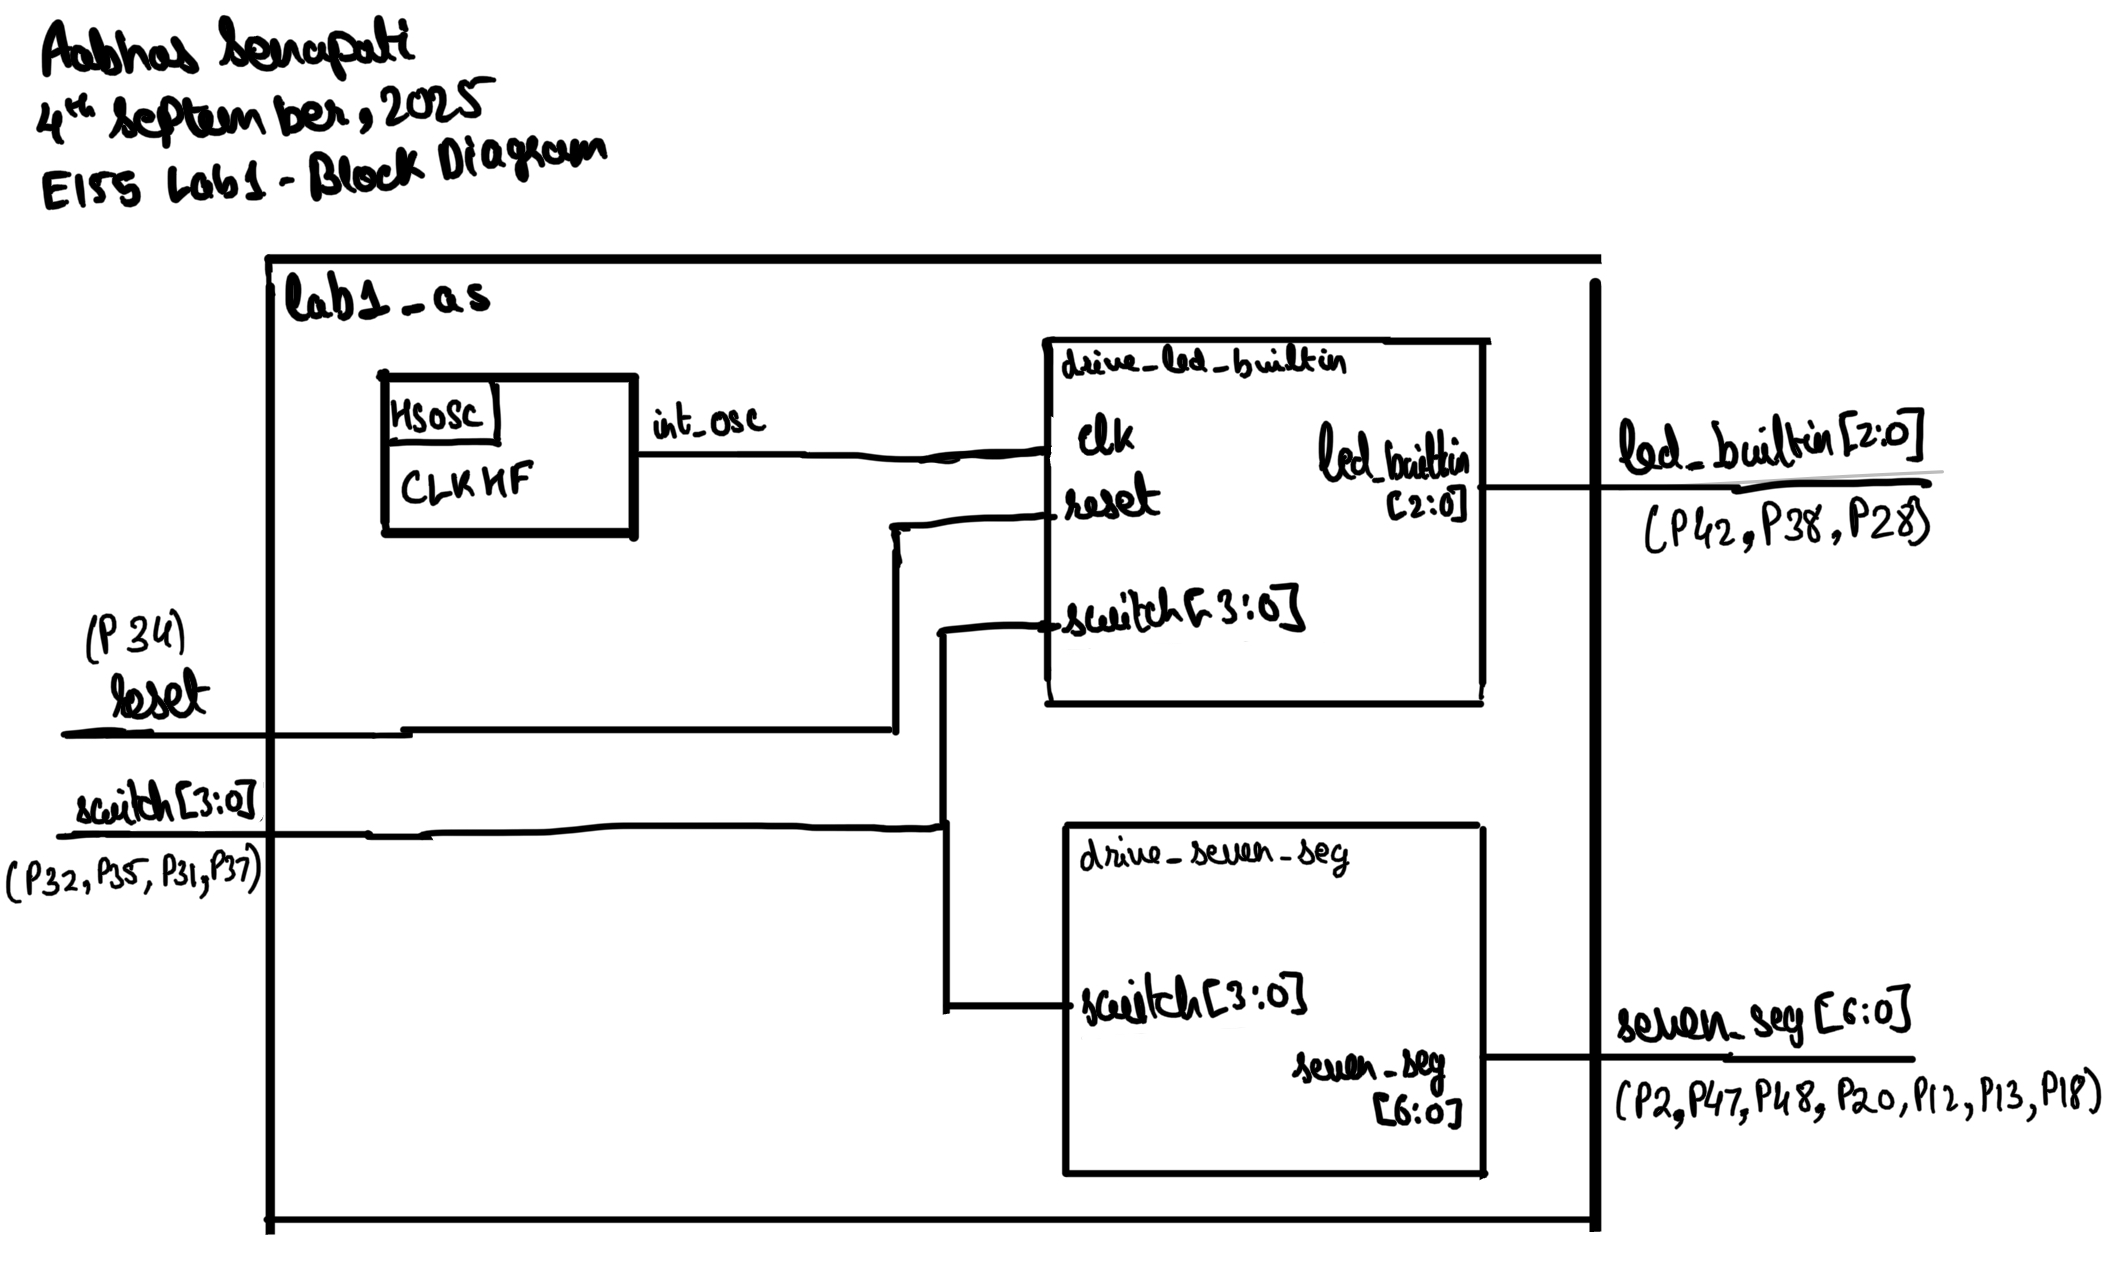 Aabhas Senapati
4th September, 2025
E155 Lab1 - Block Diagram
lab1_as
HSOSC
CLKHF
int_osc
drive_led_builtin
clk
reset
switch[3:0]
led_builtin
[2:0]
led_builtin[2:0]
(P42, P38, P28)
(P34)
reset
switch[3:0]
(P32, P35, P31, P37)
drive_seven_seg
switch[3:0]
seven_seg
[6:0]
seven_seg[6:0]
(P2, P47, P48, P20, P12, P13, P18)